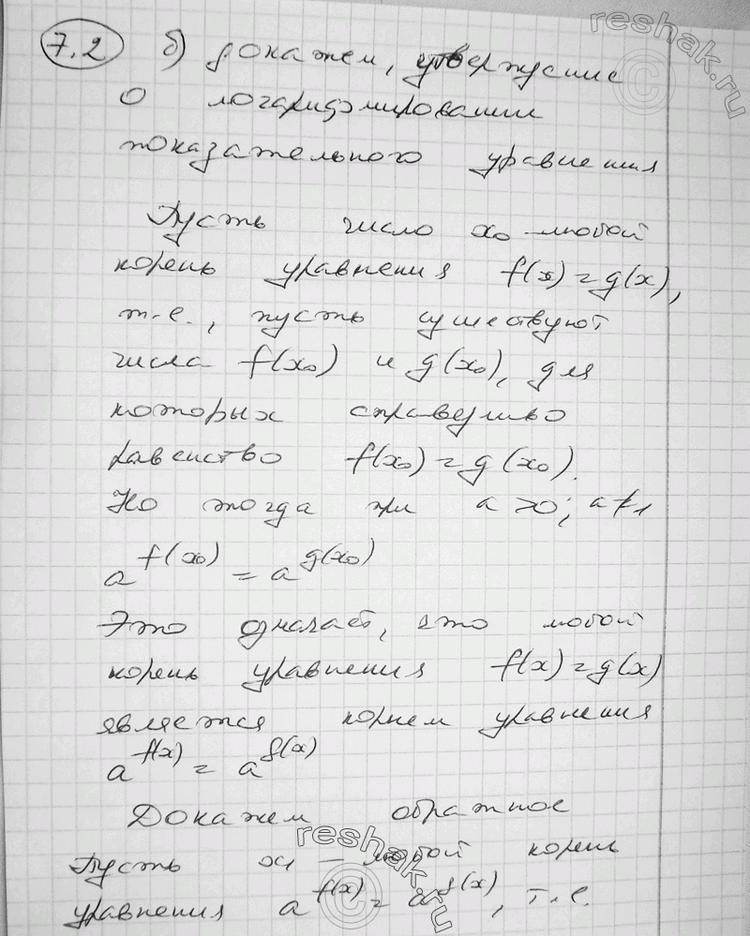 reshak.ru
7.2 б) докажем, утверждение
о логарифмировании
показательного уравнения
Пусть число x₀ – любой
корень уравнения f(x) = g(x),
т.е., пусть существуют
числа f(x₀) и g(x₀), для
которых справедливо
равенство f(x₀) = g(x₀).
Но тогда при a > 0; a ≠ 1
a^f(x₀) = a^g(x₀)
Это означает, что любой
корень уравнения f(x) = g(x)
является корнем уравнения
a^f(x) = a^g(x)
Докажем обратное
reshak.ru
Пусть x₁ – любой корень
уравнения a^f(x) = a^g(x), т.е.